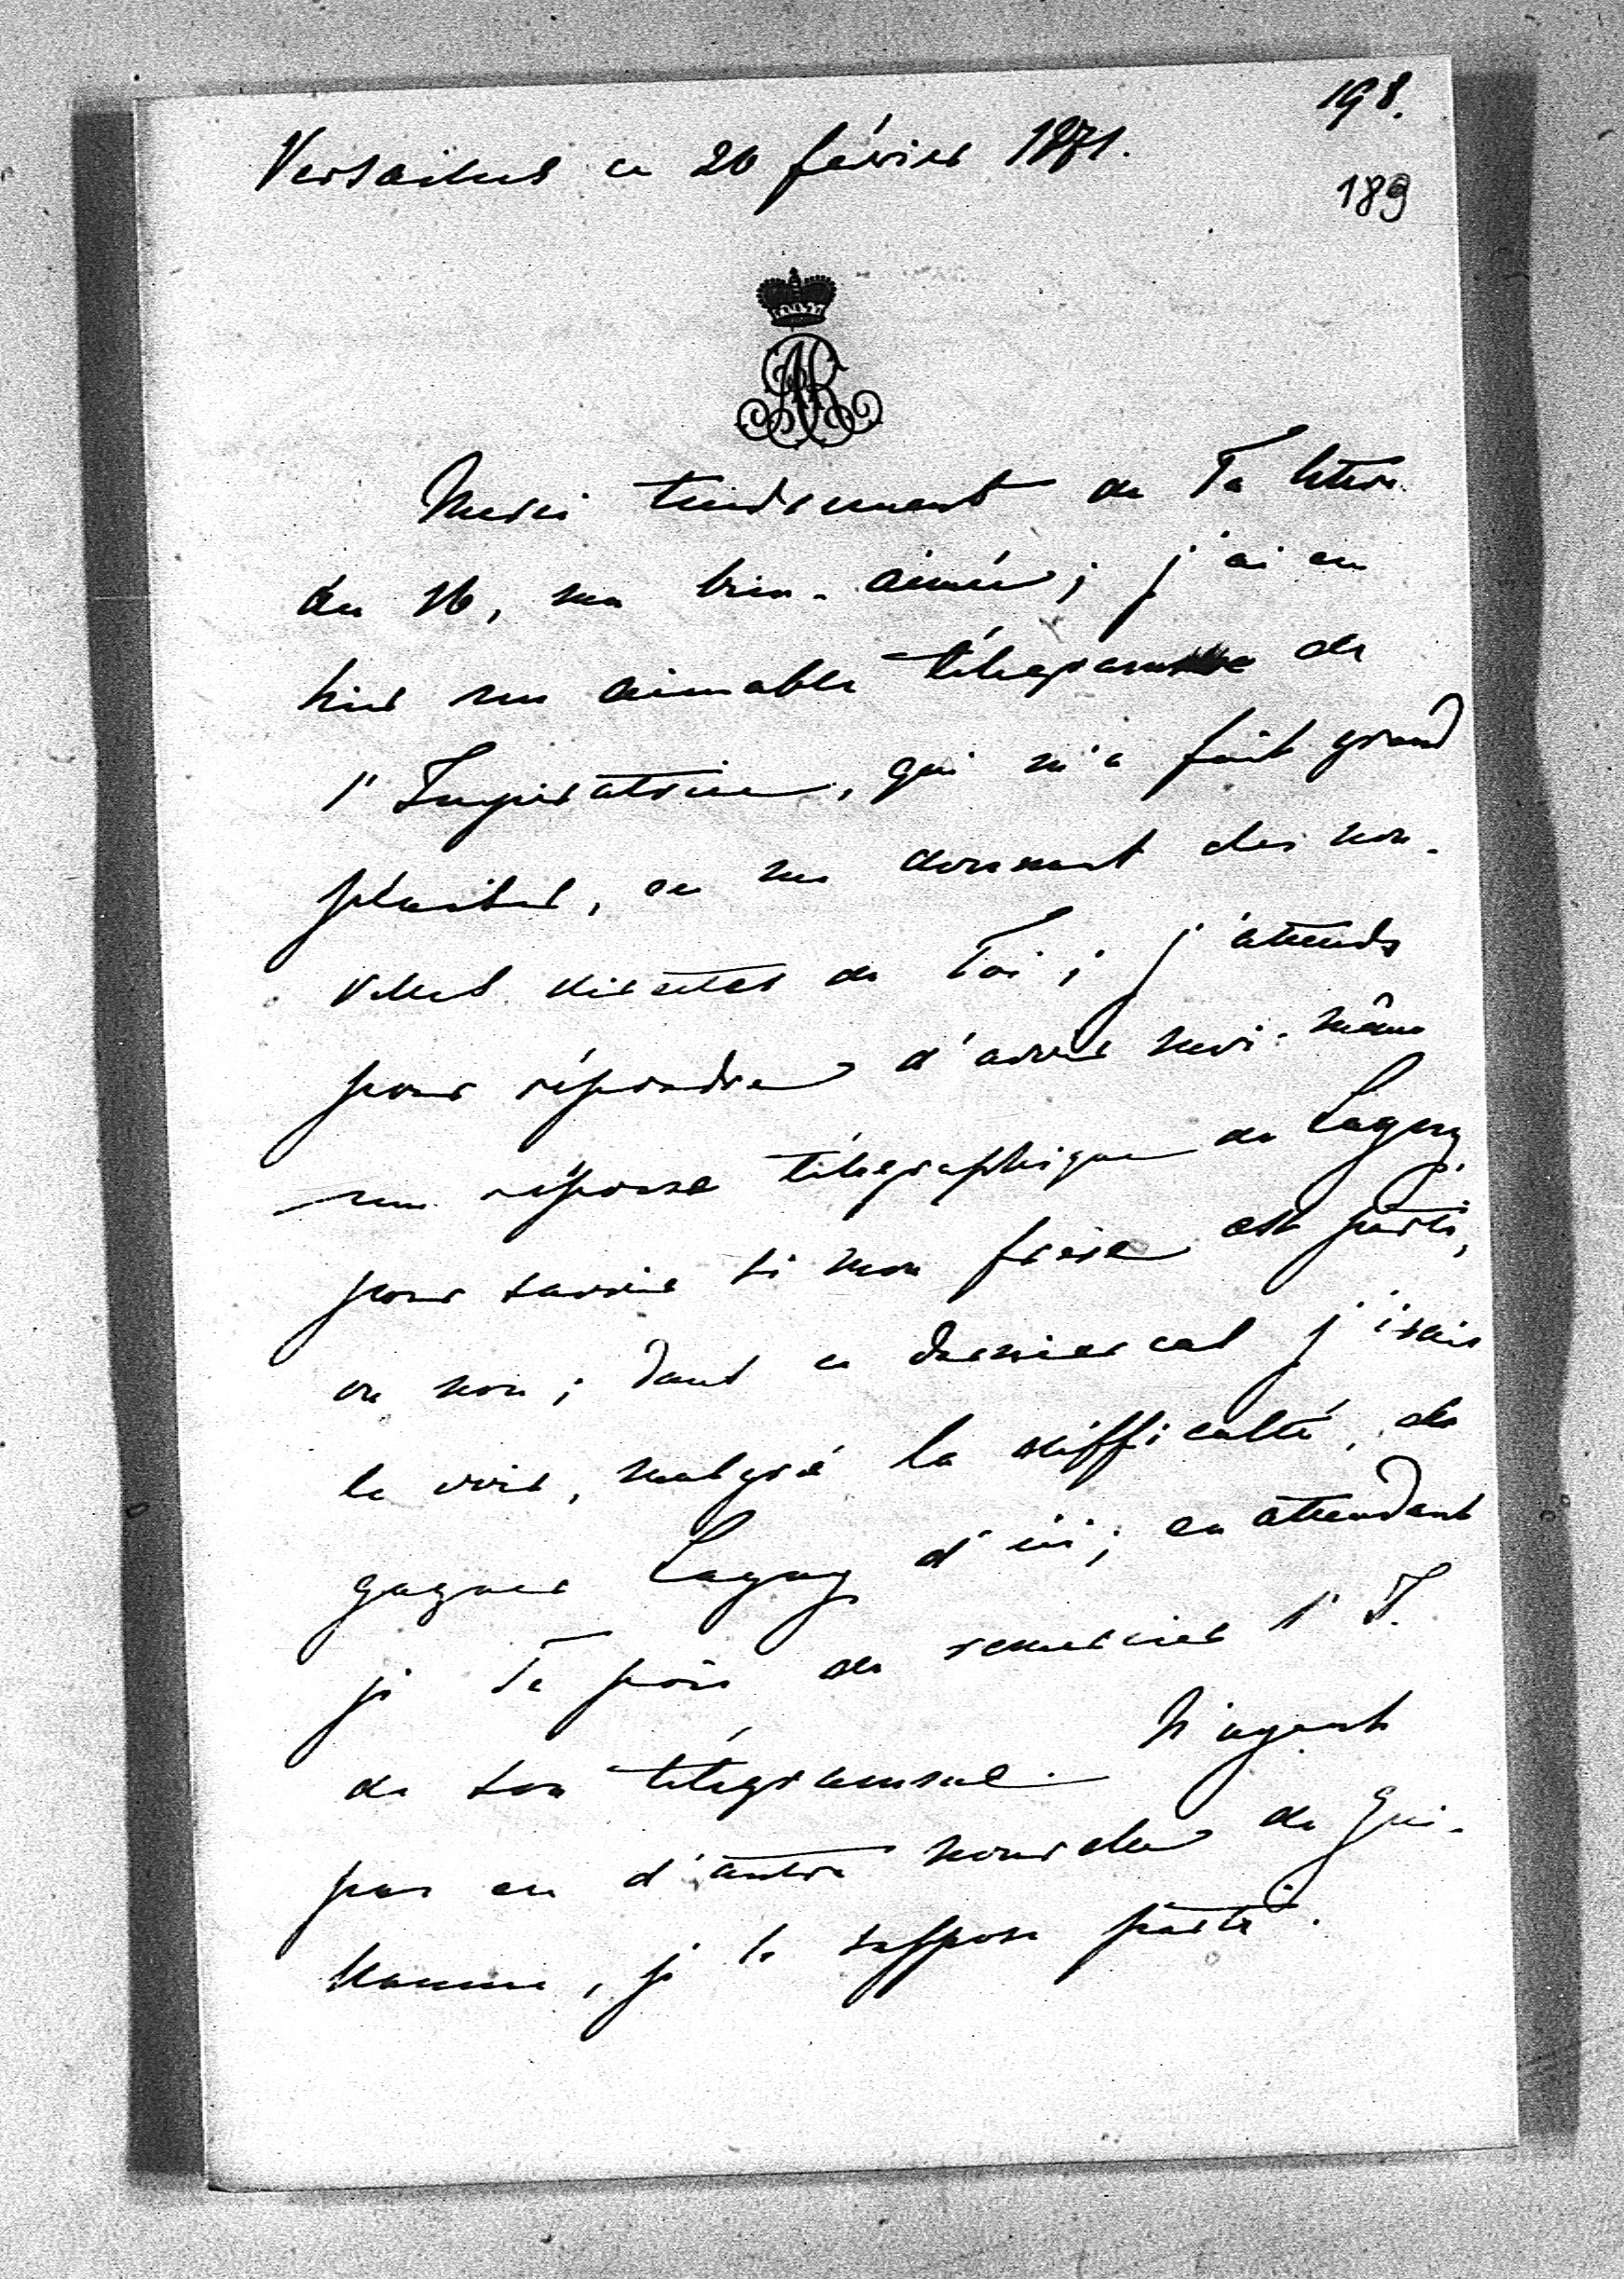 198.
Versailles ce 20 février 1871.
189
Merci tendrement de Ta lettre
du 16, ma bien-aimée; j'ai eu
hier un aimable télégramme de
l'Impératrice, qui m'a fait grand
plaisir, en me donnant des nou-
velles directes de Toi; j'attends
pour répondre d'avoir moi-même
une réponse télégraphique de Lagny,
pour savoir si mon frère est parti,
ou non; dans ce dernier cas j'irais
le voir, malgré la difficulté, de
gagner Lagny d'ici; en attendant
je Te prie de remercier l'I.
de son télégramme. N'ayant
pas eu d'autre nouvelle de Gui-
llaume, je le suppose parti.